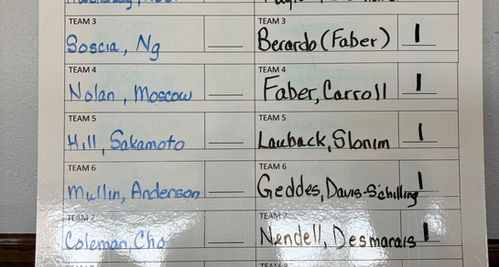 TEAM 3 TEAM 3
Soscia, Ng Berardo (Faber) 1
TEAM 4 TEAM 4
Nolan, Moscow Faber, Carroll 1
TEAM 5 TEAM 5
Hill, Sakamoto Lauback, Slonim 1
TEAM 6 TEAM 6
Mullin, Anderson Geddes, Davis-Schilling 1
TEAM 7 TEAM 7
Coleman, Cho Nendell, Desmarais 1